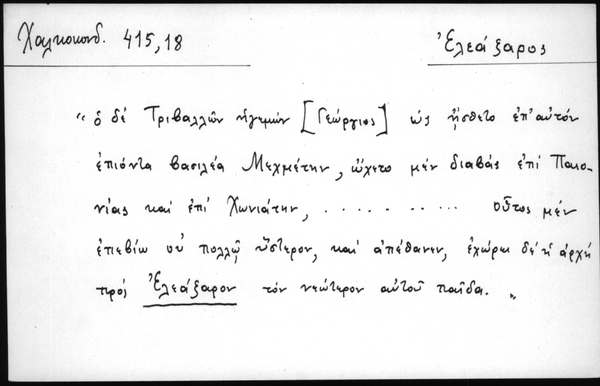 Χαλκοκονδ. 415,18
Ἐλεάζαρος
“ ὁ δέ Τριβαλλῶν ἡγεμών [Γεώργιος] ὡς ᾔσθετο ἐπ' αὐτόν
ἐπιόντα βασιλέα Μεχμέτην, ᾤχετο μέν διαβάς ἐπί Παιο-
νίας καί ἐπί Χωνιάτην, . . . . . . . . . . οὗτος μέν
ἐπεβίω οὐ πολλῷ ὕστερον, καί ἀπέθανεν, ἐχώρει δέ ἡ ἀρχή
πρός Ἐλεάζαρον τόν νεώτερον αὐτοῦ παῖδα. „